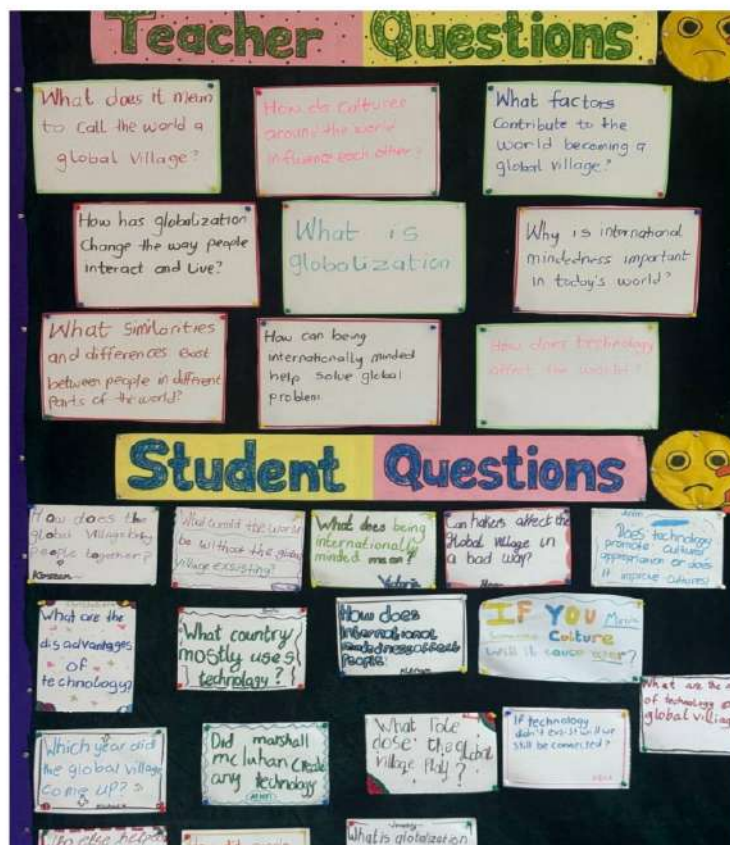 Teacher Questions
What does it mean
to call the world a
global Village?
How do cultures
around the world
influence each other?
What factors
Contribute to the
world becoming a
global village?
How has globalization
Change the way people
interact and Live?
What is
globalization
Why is international
mindedness important
in today's world?
What Similarities
and differences exist
between people in different
Parts of the world?
How can being
internationally minded
help solve global
problem
How does technology
affect the world?
Student Questions
How does the
global village bring
people together?
What would the world
be without the global
village exsisting?
What does being
internationally
minded mean?
Victoria
Can hakers affect the
global village in
a bad way?
Does technology
promote cultural
appropriation or does
it improve cultures?
What are the
disadvantages
of
technology?
What country
mostly uses
technology?
How does
international
mindedness affect
People?
IF YOU
Someones Culture
will it cause war?
What are the
of technology
global village
Which year did
the global village
come up?
Did marshall
mc luhan Create
any technology
What role
dose the global
village Play?
If technology
didn't exsist will we
still be connected?
else helped
What is globalization